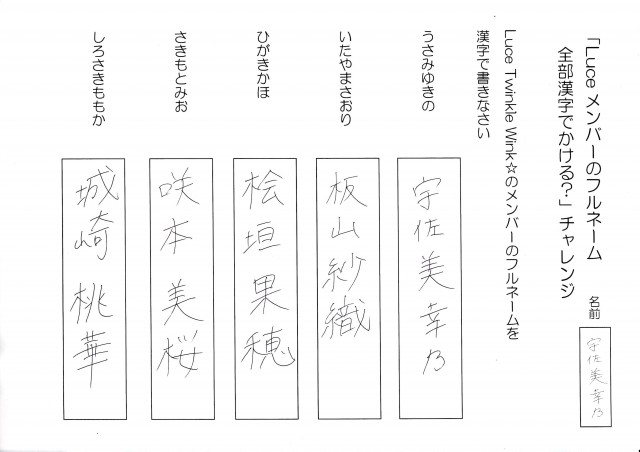 「Luce メンバーのフルネーム
全部漢字でかける?」チャレンジ
名前
宇佐美幸乃
Luce Twinkle Wink☆のメンバーのフルネームを
漢字で書きなさい
うさみゆきの
宇佐美幸乃
いたやまさおり
板山紗織
ひがきかほ
桧垣果穂
さきもとみお
咲本美桜
しろさきももか
城崎桃華